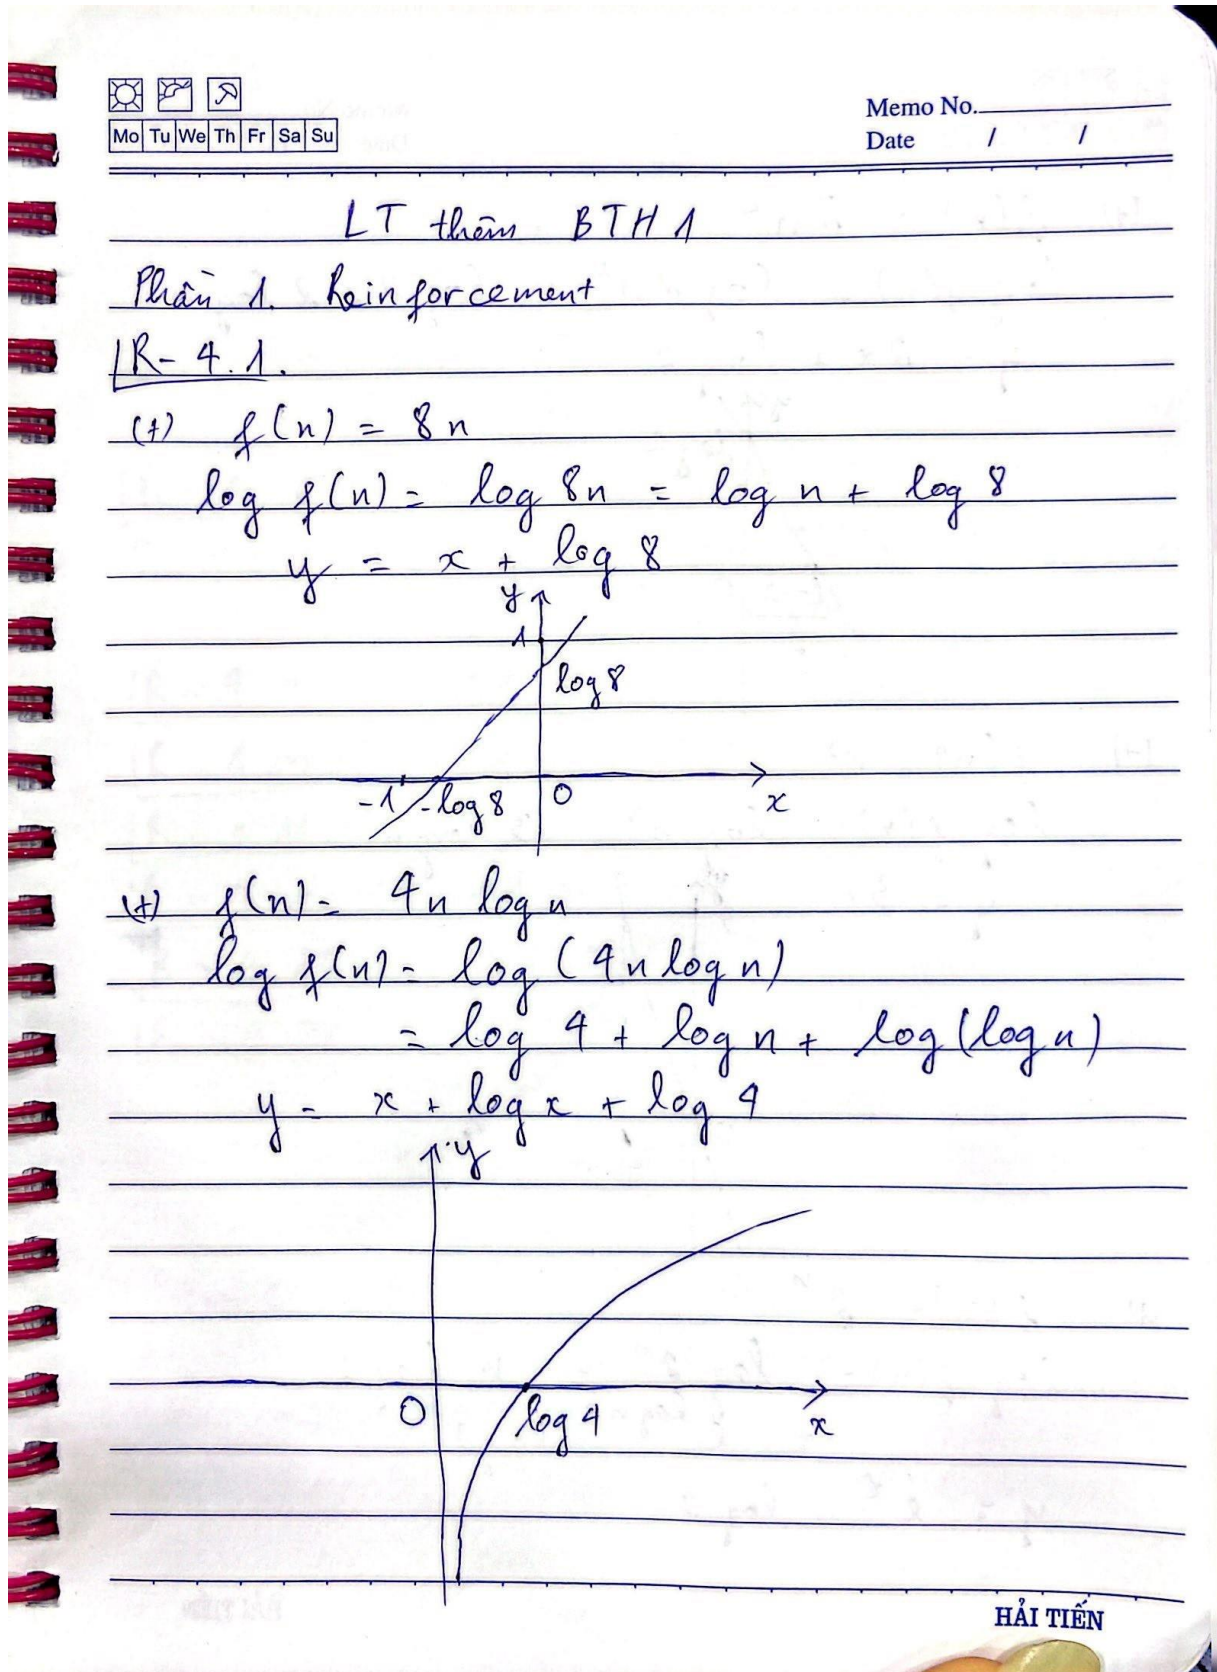 Mo Tu We Th Fr Sa Su
Memo No.
Date / /
LT thêm BTH 1
Phần 1. Reinforcement
R- 4.1.
(+) f(n) = 8n
log f(n) = log 8n = log n + log 8
y = x + log 8
y
1
log 8
-1 -log 8 0 x
(+) f(n) = 4n log n
log f(n) = log (4n log n)
= log 4 + log n + log (log n)
y = x + log x + log 4
y
0 log 4 x
HẢI TIẾN